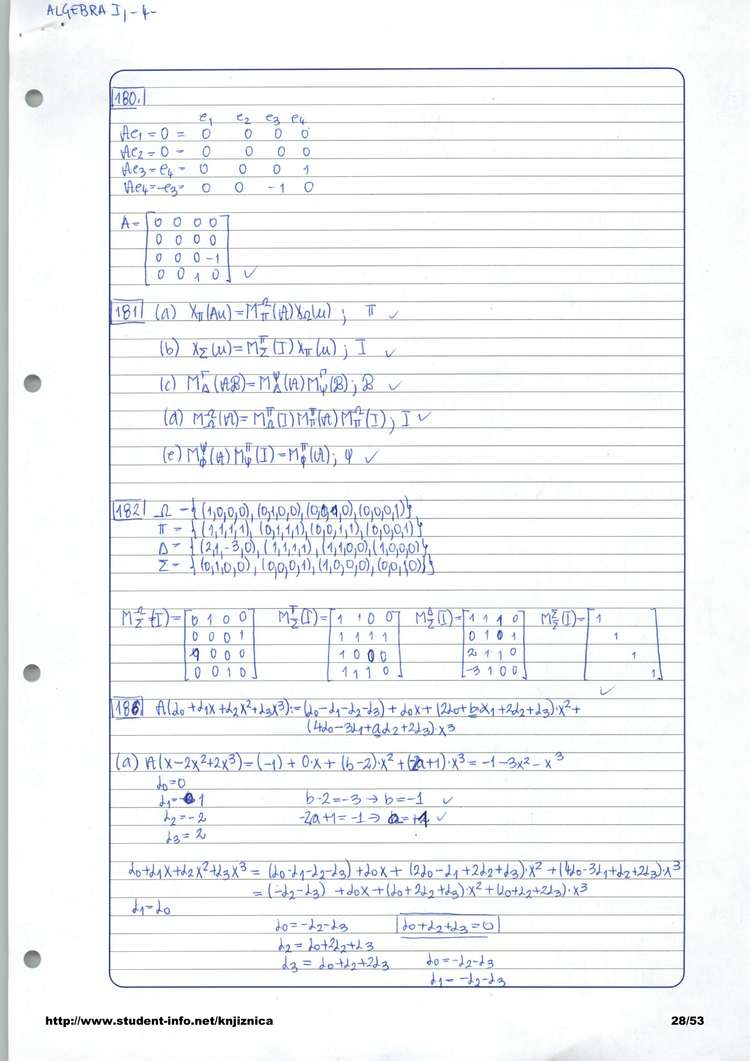 ALGEBRA I, -4-
180.
e₁ e₂ e₃ e₄
Ae₁=0 = 0 0 0 0
Ae₂=0 = 0 0 0 0
Ae₃=e₄= 0 0 0 1
Ae₄=-e₃= 0 0 -1 0
A= 0 0 0 0
0 0 0 0
0 0 0 -1
0 0 1 0 ✓
181 (a) X_π(Au)=M_π^Ω(A)X_Ω(u) ; π ✓
(b) X_Σ(u)=M_Σ^π(I)X_π(u) ; I ✓
(c) M_Δ^Γ(AB)=M_Δ^Ψ(A)M_Ψ^Γ(B) ; B ✓
(d) M_Ω^Ω(A)=M_Ω^π(I)M_π^π(A)M_π^Ω(I) ; I ✓
(e) M_Φ^Ψ(A)M_Ψ^π(I)=M_Φ^π(A) ; Ψ ✓
182 Ω = {(1,0,0,0),(0,1,0,0),(0,0,1,0),(0,0,0,1)}
π = {(1,1,1,1),(0,1,1,1),(0,0,1,1),(0,0,0,1)}
Δ = {(2,1,-3,0),(1,1,1,1),(1,1,0,0),(1,0,0,0)}
Σ = {(0,1,0,0),(0,0,0,1),(1,0,0,0),(0,0,1,0)}
M_Σ^Ω(I)= 0 1 0 0 M_Σ^π(I)= 1 1 0 0 M_Σ^Δ(I)= 1 1 1 0 M_Σ^Σ(I)= 1
0 0 0 1 1 1 1 1 0 1 0 1 1
1 0 0 0 1 0 0 0 2 1 1 0 1
0 0 1 0 1 1 1 0 -3 1 0 0 1
✓
186 A(α₀+α₁x+α₂x²+α₃x³):=(α₀-α₁-α₂-α₃)+α₀x+(2α₀+bα₁+2α₂+α₃)·x²+
(4α₀-3α₁+aα₂+2α₃)·x³
(a) A(x-2x²+2x³)=(-1)+0·x+(b-2)·x²+(-2a+1)·x³=-1-3x²-x³
α₀=0
α₁=1 b-2=-3→b=-1 ✓
α₂=-2 -2a+1=-1→a=+1 ✓
α₃=2
α₀+α₁x+α₂x²+α₃x³=(α₀-α₁-α₂-α₃)+α₀x+(2α₀-α₁+2α₂+α₃)·x²+(4α₀-3α₁+α₂+2α₃)·x³
=(-α₂-α₃)+α₀x+(α₀+2α₂+α₃)·x²+(α₀+α₂+2α₃)·x³
α₁=α₀
α₀=-α₂-α₃ α₀+α₂+α₃=0
α₂=α₀+2α₂+α₃
α₃=α₀+α₂+2α₃ α₀=-α₂-α₃
α₁=-α₂-α₃
http://www.student-info.net/knjiznica 28/53